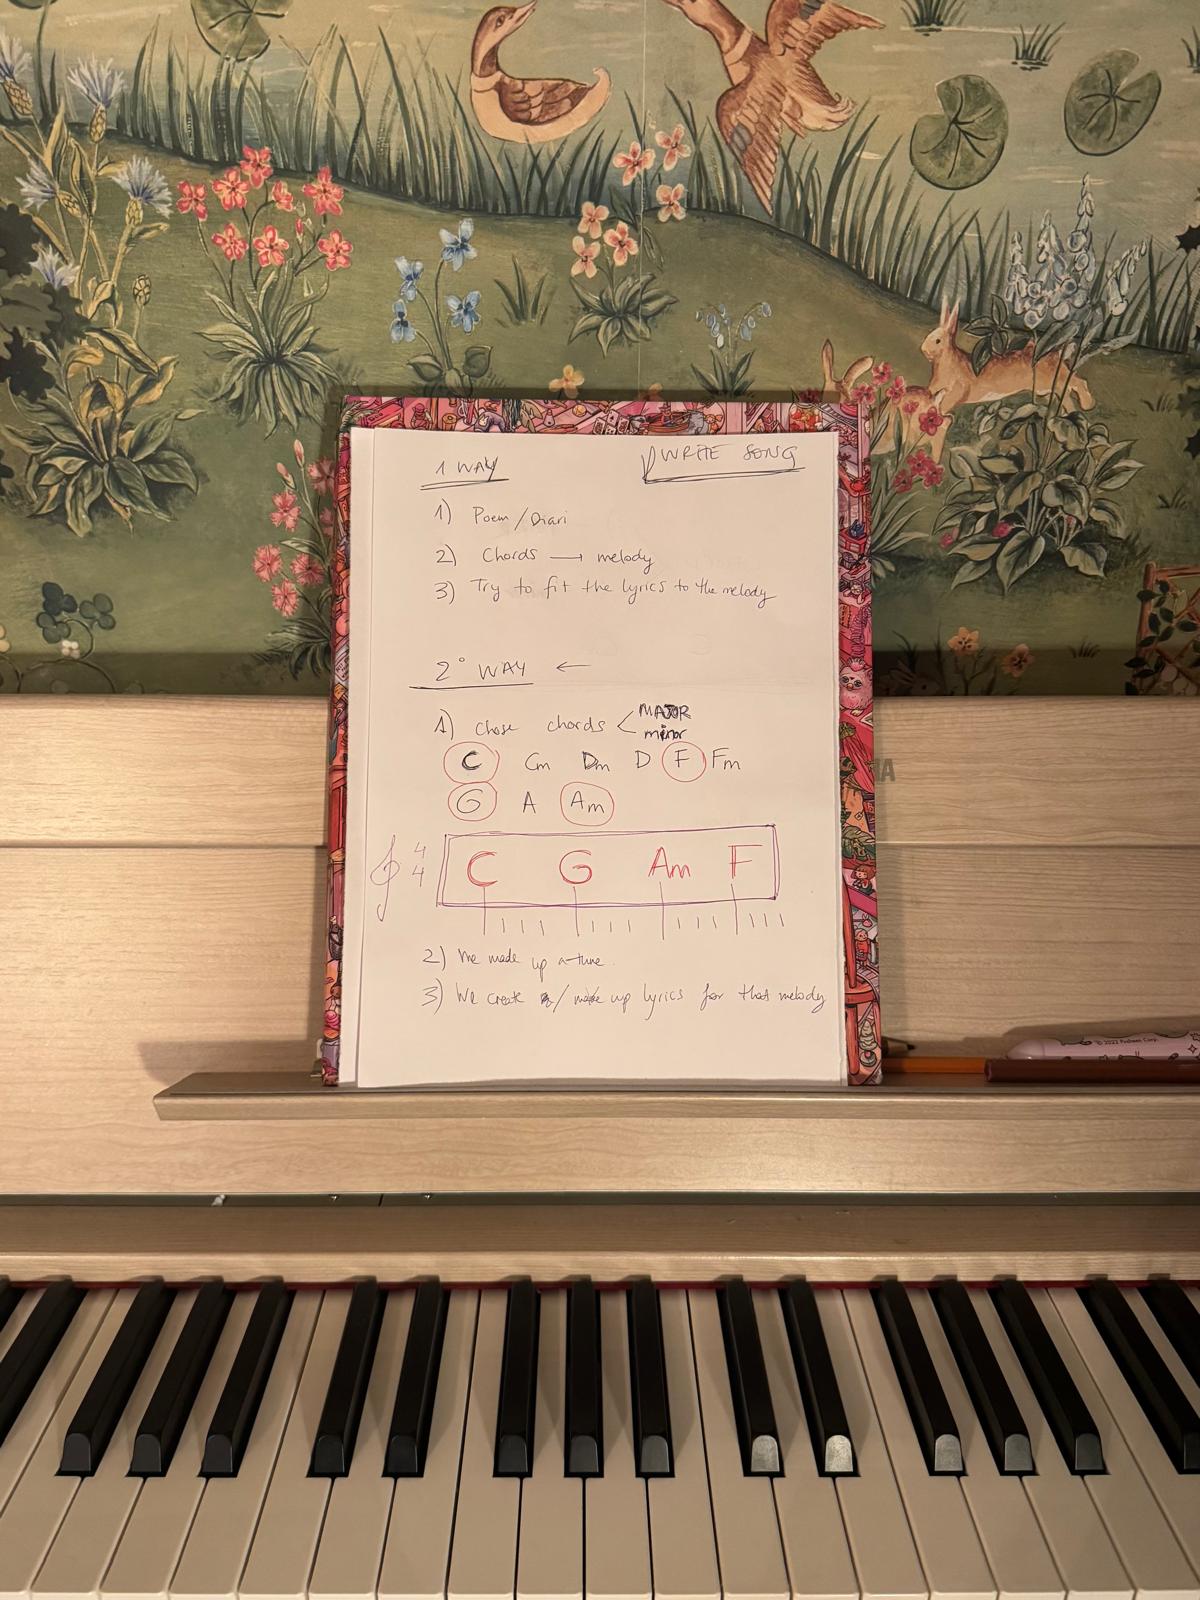 1 WAY
WRITE SONG
1) Poem / Diari
2) Chords → melody
3) Try to fit the lyrics to the melody
2° WAY ←
1) Chose chords < MAJOR
minor
C Cm Dm D F Fm
G A Am
4
4
C G Am F
2) We made up a tune.
3) We create / make up lyrics for that melody
HA
© 2022 Pusheen Corp.